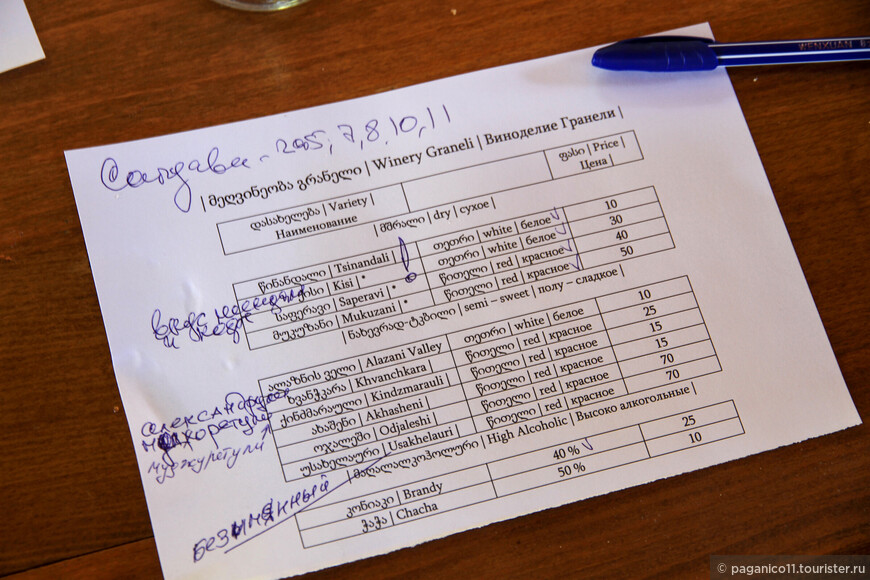 Саперави - 2005, 7, 8, 10, 11
| მეღვინეობა გრანელი | Winery Graneli | Виноделие Гранели |
დასახელება | Variety | Наименование
ფასი | Price | Цена |
| მშრალი | dry | сухое |
წინანდალი | Tsinandali | თეთრი | white | белое 10
ქისი | Kisi | * თეთრი | white | белое 30
საფერავი | Saperavi | * წითელი | red | красное 40
მუკუზანი | Mukuzani | * წითელი | red | красное 50
| ნახევრად-ტკბილი | semi – sweet | полу – сладкое |
ალაზნის ველი | Alazani Valley თეთრი | white | белое 10
ხვანჭკარა | Khvanchkara წითელი | red | красное 25
ქინძმარაული | Kindzmarauli წითელი | red | красное 15
ახაშენი | Akhasheni წითელი | red | красное 15
ოჯალეში | Odjaleshi წითელი | red | красное 70
უსახელაური | Usakhelauri წითელი | red | красное 70
| მაღალალკოჰოლური | High Alcoholic | Высоко алкогольные |
კონიაკი | Brandy 40 % 25
ჭაჭა | Chacha 50 % 10
и
александроули
муджуретули
безымянный
WENKUAN
© paganico11.tourister.ru